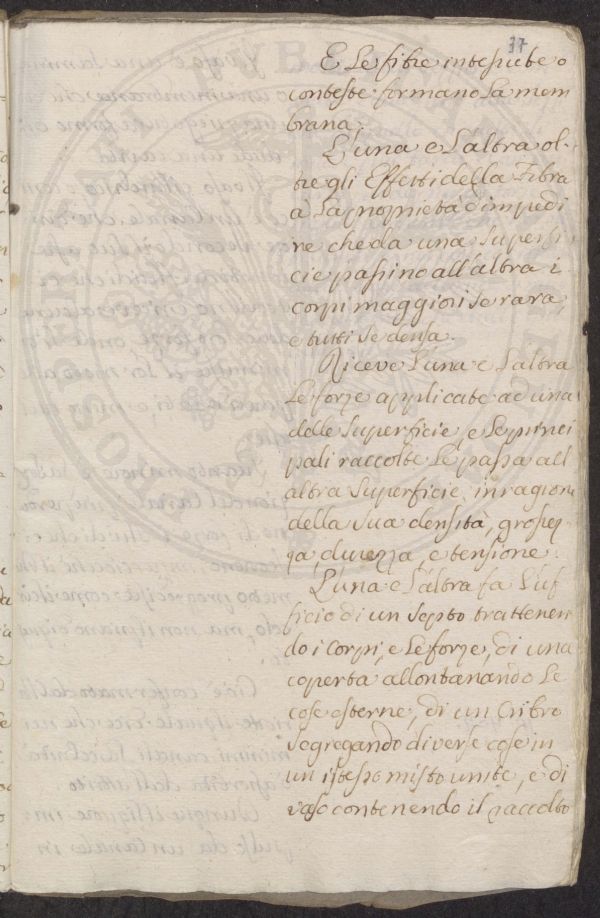 37
E Le fibre intessute o
conteste formano La mem
brana.
L'una e L'altra ol-
tre gli Effetti della Fibra
à La proprietà d'impedi
re che da una superfi
cie passino all'altra i
corpi maggiori se rara,
e tutti se densa.
Riceve L'una e L'altra
Le forze applicate ad una
delle superficie, e Le princi
pali raccolte Le passa all'
altra superficie, in ragione
della sua densità, grossez
za, durezza, e tensione.
L'una e L'altra fa L'uf
ficio di un septo trattenen
do i corpi, e Le forze, di una
coperta allontanando Le
cose esterne, di un Cribro
segregando diverse cose in
un istesso misto unite, e di
vaso contenendo il raccolto